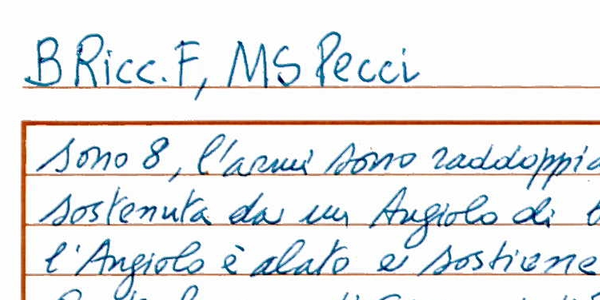 B Ricc. F, MS Pecci
sono 8, l'armi sono raddoppia
sostenuta da un Angiolo di
l'Angiolo è alato e sostiene